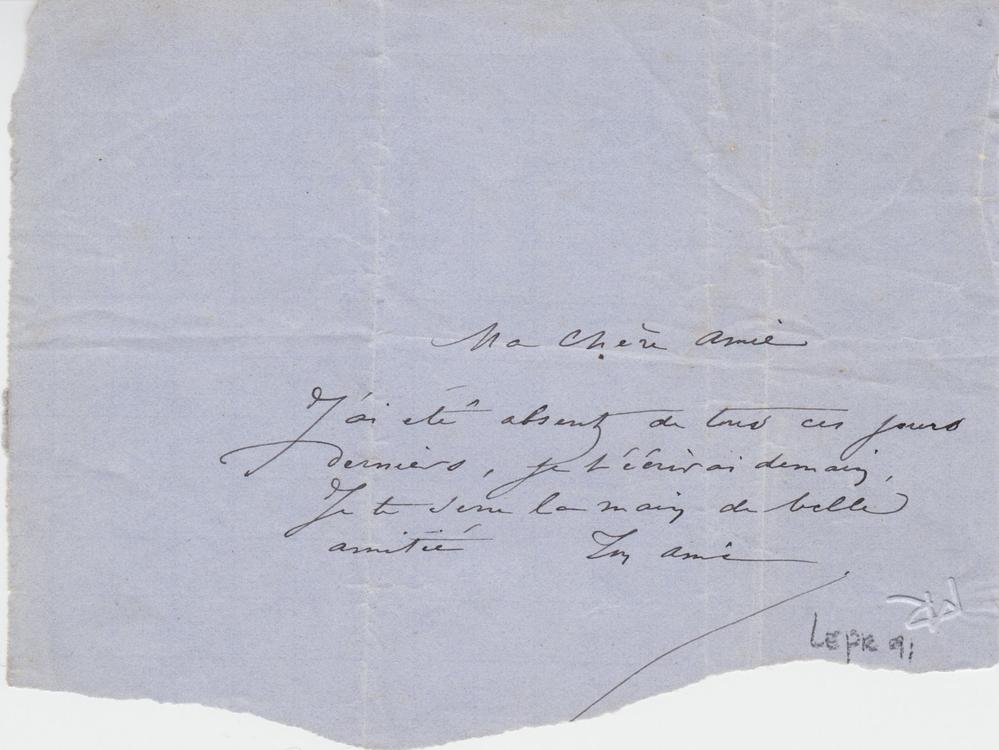 Ma chère amie
J'ai été absent de tous ces jours
derniers, je t'écrirai demain,
Je te serre la main de belle
amitié Ton ami
LEPR 91